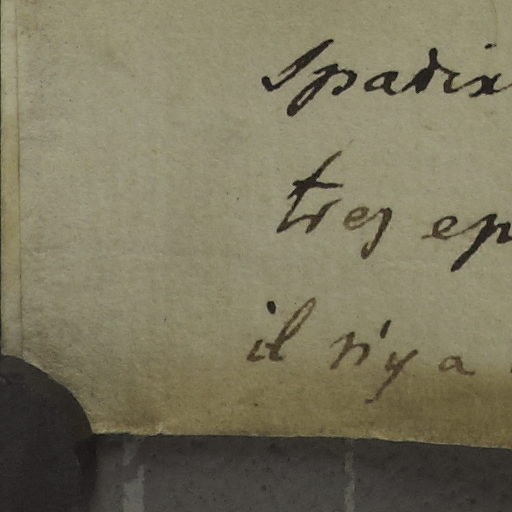 Spadix
tres ep
il n'y a